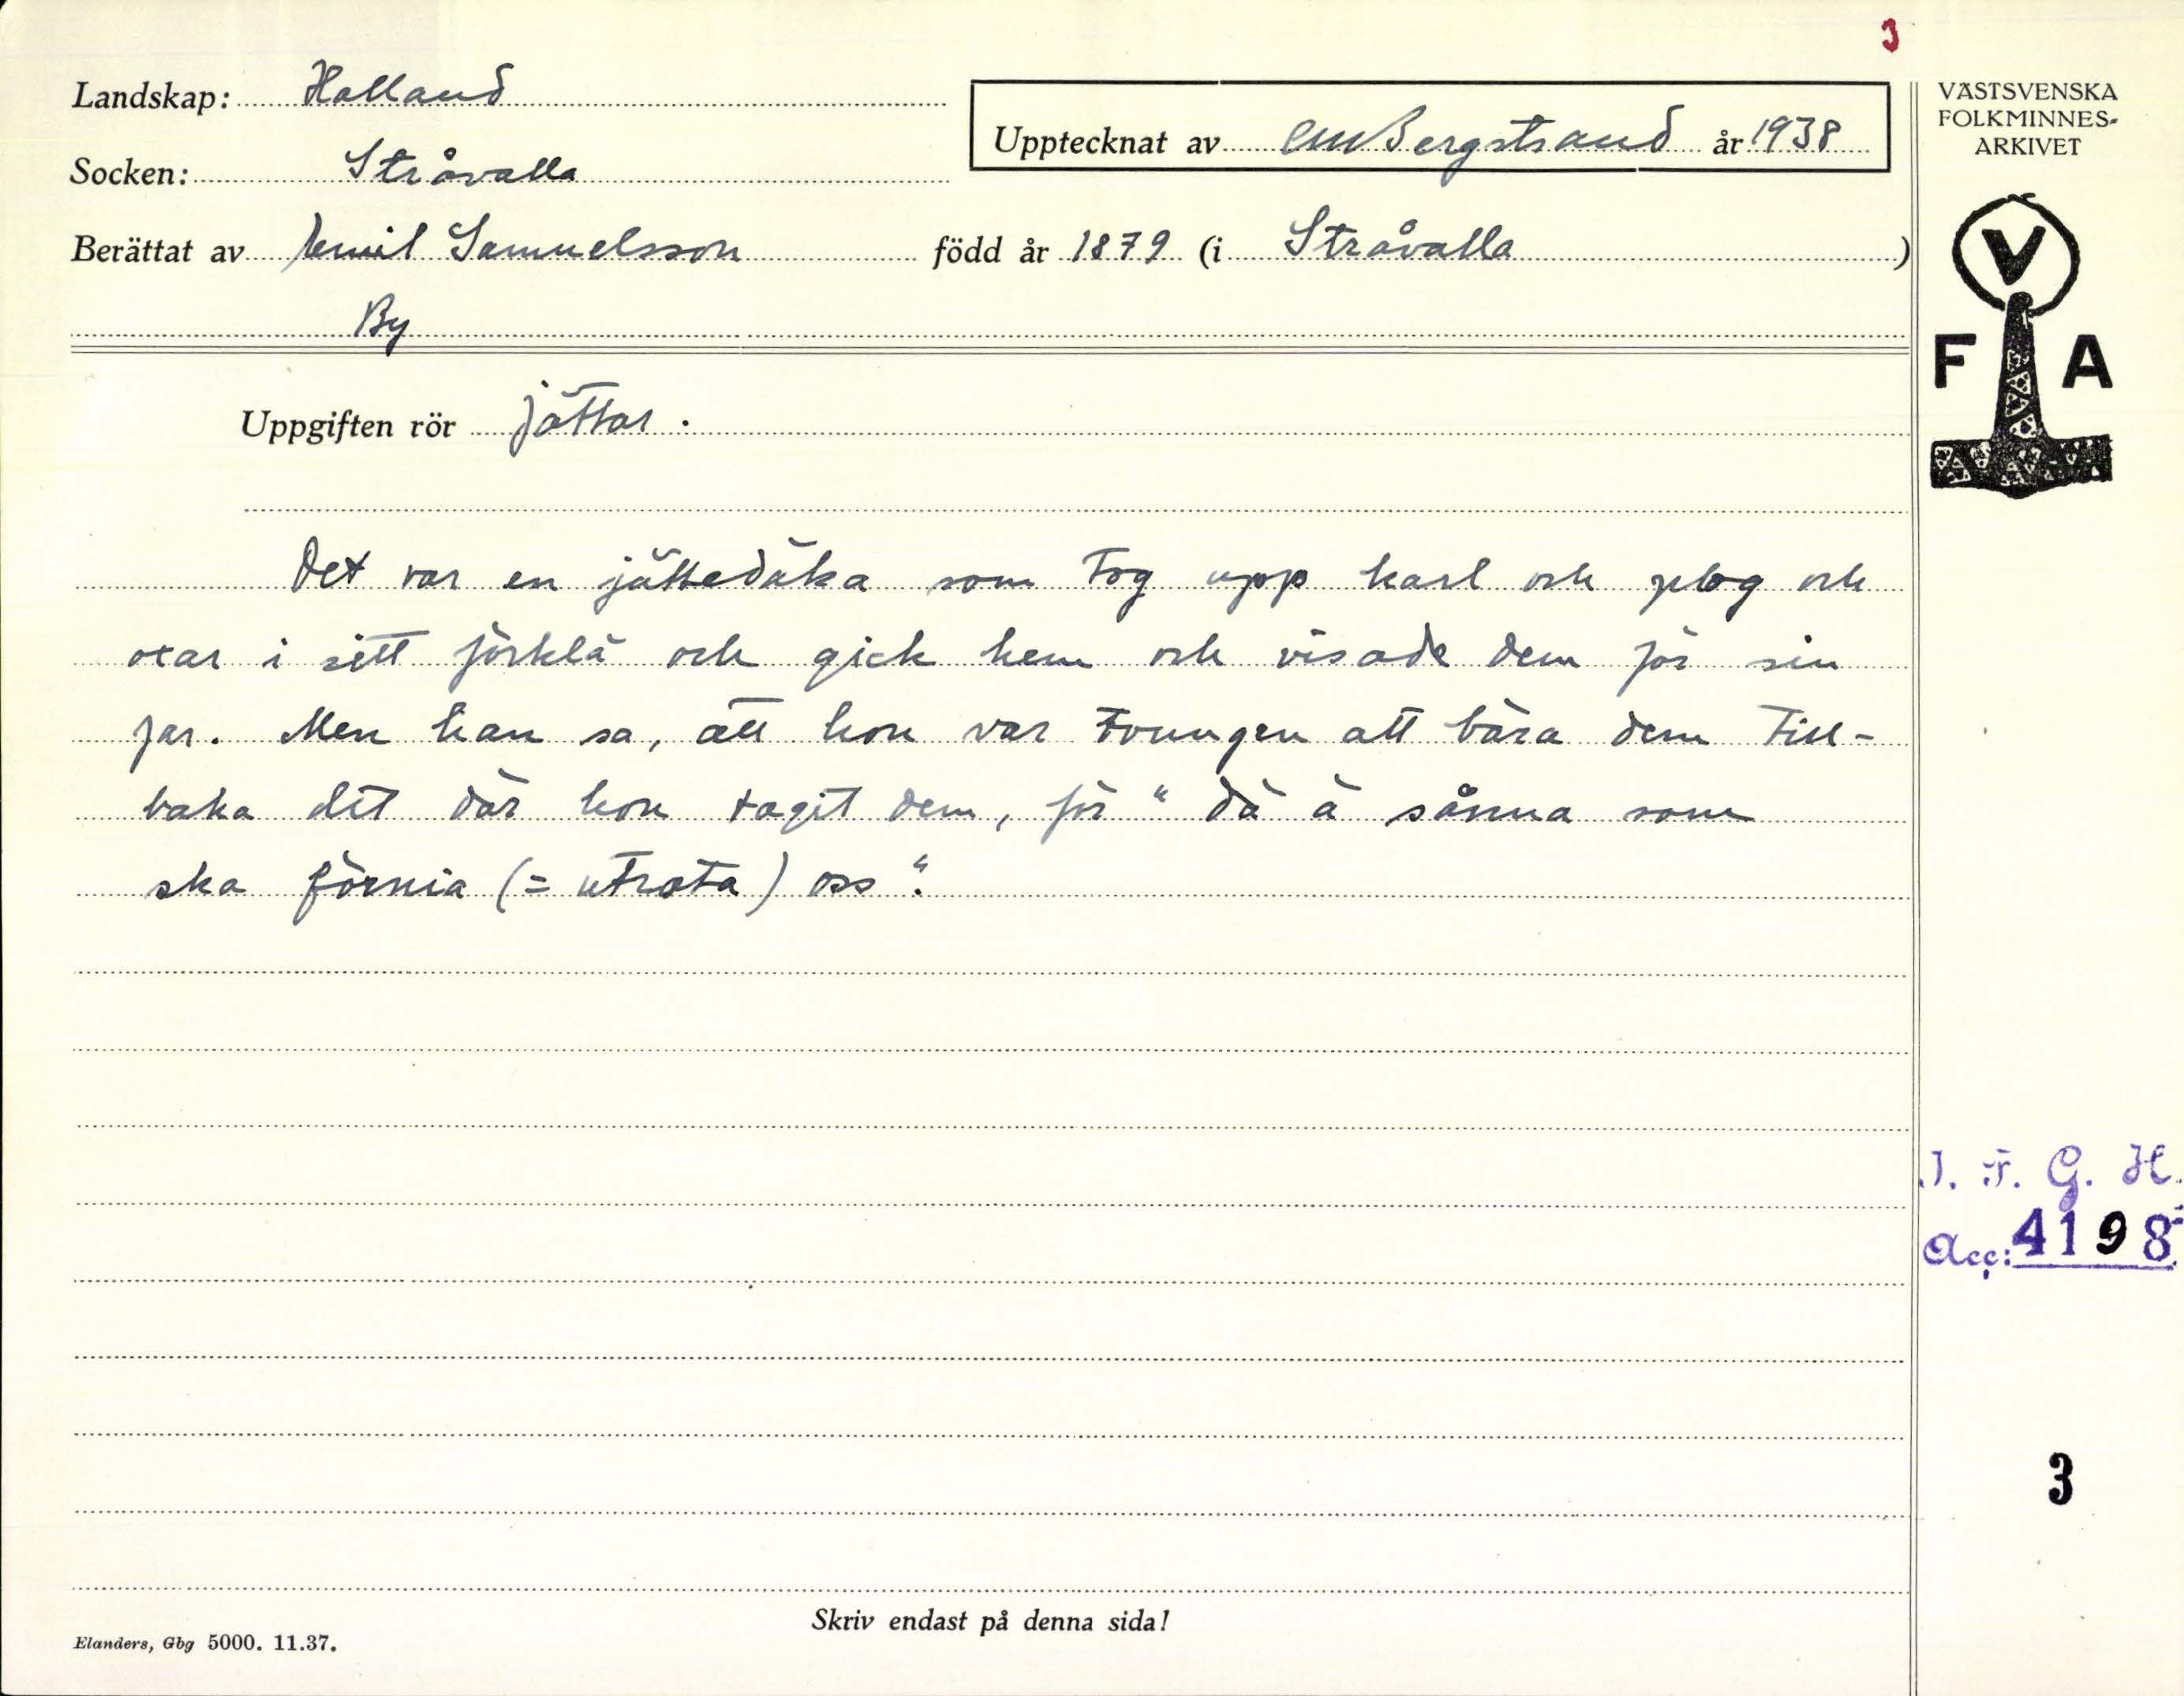 3
Landskap: Halland
Upptecknat av CMBergstrand år 1938
Socken: Stråvalla
Berättat av Emil Samuelsson född år 1879 (i Stråvalla )
By
Uppgiften rör Jättar.
Det var en jättedäka som tog upp karl och plog och
oxar i sitt förklä och gick hem och visade dem för sin
far. Men han sa, att hon var tvungen att bära dem till-
baka dit där hon tagit dem, för "dä ä sånna som
ska förnia (= utrota) oss".
VÄSTSVENSKA
FOLKMINNES-
ARKIVET
V
F A
I. F. G. H.
Acc: 4198
3
Skriv endast på denna sida!
Elanders, Gbg 5000. 11.37.